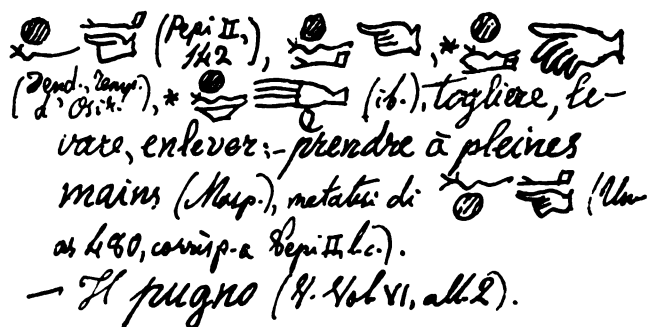 (Pepi II, 142), , *
(Dend., Temp. d'Osir.), * (ib.), togliere, le-
vare, enlever;- prendre à pleines
mains (Masp.), metatesi di (Un-
as 480, corrisp. a Pepi II, l.c.).
— Il pugno (V. Vol VI, all. 2).